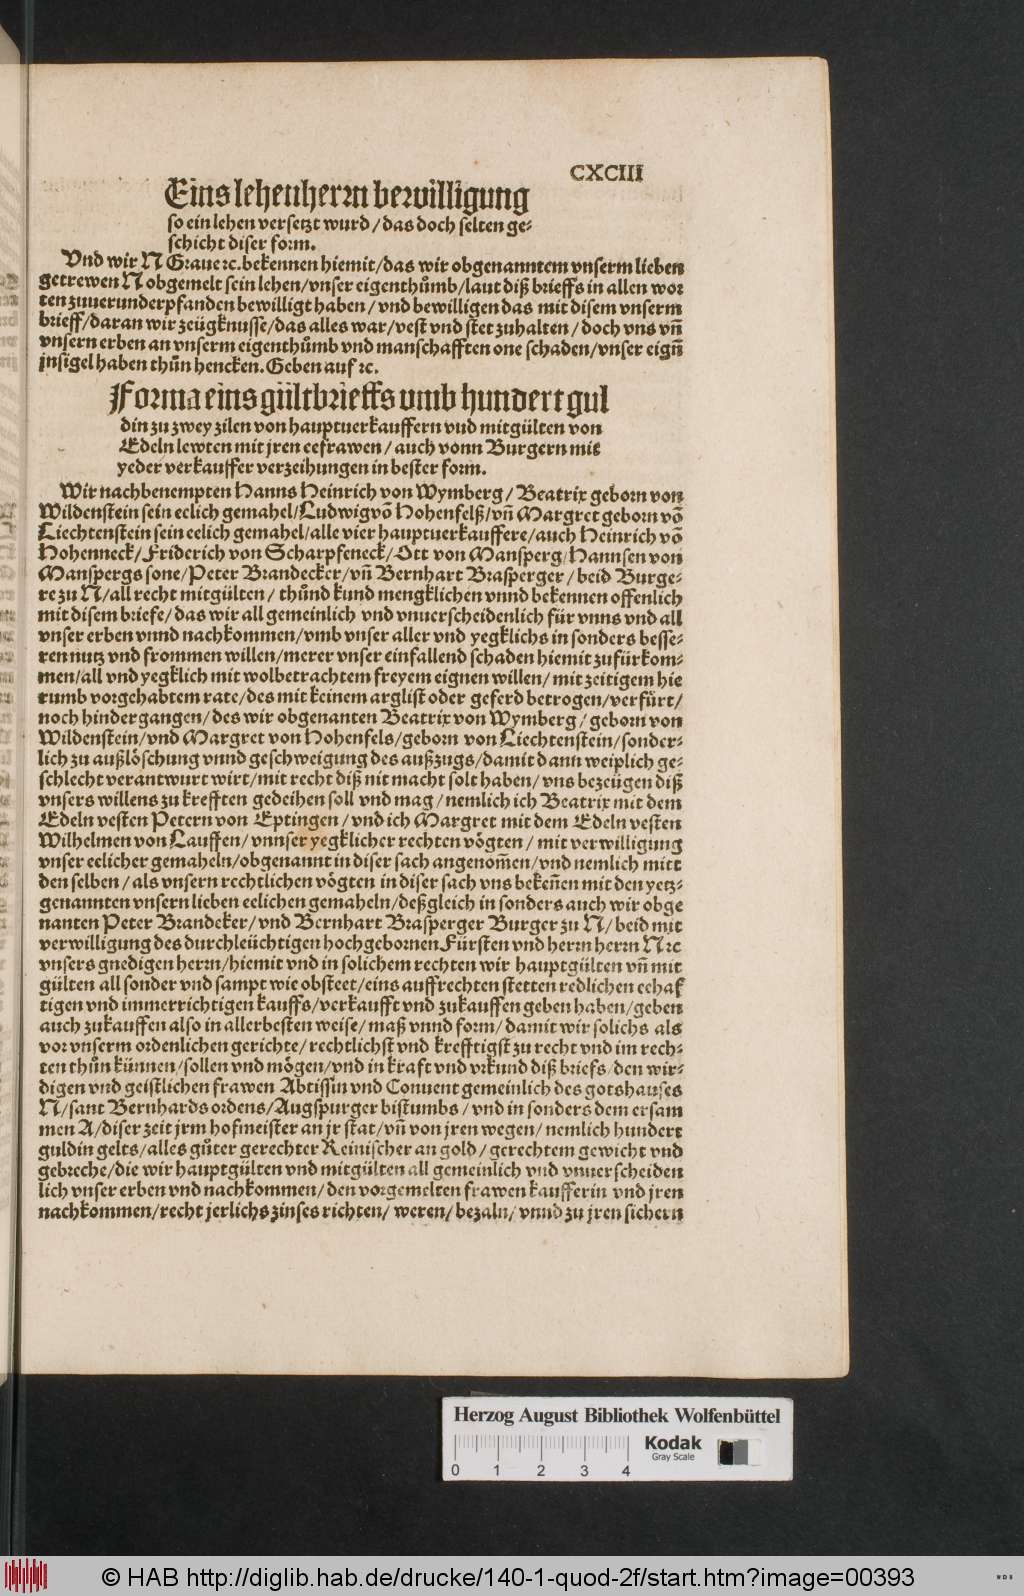 CXCIII
Eins lehenherrn bewilligung
so ein lehen versetzt wurd / das doch selten ge-
schicht diser form.
Vnd wir N Graue ꝛc. bekennen hiemit / das wir obgenanntem vnserm lieben
getrewen N obgemelt sein lehen / vnser eigenthůmb / laut diß brieffs in allen wor
ten zuuerunderpfanden bewilligt haben / vnd bewilligen das mit disem vnserm
brieff / daran wir zeügknusse / das alles war / vest vnd stet zuhalten / doch vns vn̄
vnsern erben an vnserm eigenthůmb vnd manschafften one schaden / vnser eign̄
jnsigel haben thůn hencken. Geben auf ꝛc.
Forma eins gültbrieffs vmb hundert gul
din zu zwey zilen von hauptuerkauffern vnd mitgülten von
Edeln lewten mit jren eefrawen / auch vonn Burgern mit
yeder verkauffer verzeihungen in bester form.
Wir nachbenempten Hanns Heinrich von Wymberg / Beatrix geborn von
Wildenstein sein eelich gemahel / Ludwig vō Hohenfelß / vn̄ Margret geborn vō
Liechtenstein sein eelich gemahel / alle vier hauptuerkauffere / auch Heinrich vō
Hohenneck / Friderich von Scharpfeneck / Ott von Mansperg / Hannsen von
Manspergs sone / Peter Brandecker / vn̄ Bernhart Brasperger / beid Burge-
re zu N / all recht mitgülten / thůnd kund mengklichen vnnd bekennen offenlich
mit disem briefe / das wir all gemeinlich vnd vnuerscheidenlich für vnns vnd all
vnser erben vnnd nachkommen / vmb vnser aller vnd yegklichs in sonders besse-
ren nutz vnd frommen willen / merer vnser einfallend schaden hiemit zufürkom-
men / all vnd yegklich mit wolbetrachtem freyem eignen willen / mit zeitigem hie
rumb vorgehabtem rate / des mit keinem arglist oder geferd betrogen / verfürt /
noch hindergangen / des wir obgenanten Beatrix von Wymberg / geborn von
Wildenstein / vnd Margret von Hohenfels / geborn von Liechtenstein / sonder-
lich zu außlöschung vnnd geschweigung des außzugs / damit dann weiplich ge-
schlecht verantwurt wirt / mit recht diß nit macht solt haben / vns bezeügen diß
vnsers willens zu krefften gedeihen soll vnd mag / nemlich ich Beatrix mit dem
Edeln vesten Petern von Eptingen / vnd ich Margret mit dem Edeln vesten
Wilhelmen von Lauffen / vnnser yegklicher rechten vögten / mit verwilligung
vnser eelicher gemaheln / obgenannt in diser sach angenom̄en / vnd nemlich mitt
den selben / als vnsern rechtlichen vögten in diser sach vns beken̄en mit den yetz-
genannten vnsern lieben eelichen gemaheln / deßgleich in sonders auch wir obge
nanten Peter Brandeker / vnd Bernhart Brasperger Burger zu N / beid mit
verwilligung des durchleüchtigen hochgebornen Fürsten vnd herrn herrn N ꝛc
vnsers gnedigen herrn / hiemit vnd in solichem rechten wir hauptgülten vn̄ mit
gülten all sonder vnd sampt wie obsteet / eins auffrechten stetten redlichen eehaf
tigen vnd immerrichtigen kauffs / verkaufft vnd zukauffen geben haben / geben
auch zukauffen also in allerbesten weise / maß vnnd form / damit wir solichs als
vor vnserm ordenlichen gerichte / rechtlichst vnd krefftigst zu recht vnd im rech-
ten thůn künnen / sollen vnd mögen / vnd in kraft vnd vrkund diß briefs / den wir-
digen vnd geistlichen frawen Abtissin vnd Conuent gemeinlich des gotshauses
N / sant Bernhards ordens / Augspurger bistumbs / vnd in sonders dem ersam
men A / diser zeit jrm hofmeister an jr stat / vn̄ von jren wegen / nemlich hundert
guldin gelts / alles gůter gerechter Reinischer an gold / gerechtem gewicht vnd
gebreche / die wir hauptgülten vnd mitgülten all gemeinlich vnd vnuerscheiden
lich vnser erben vnd nachkommen / den vorgemelten frawen kaufferin vnd jren
nachkommen / recht jerlichs zinses richten / weren / bezaln / vnnd zu jren sichern
Herzog August Bibliothek Wolfenbüttel
Kodak
Gray Scale
0 1 2 3 4
© HAB http://diglib.hab.de/drucke/140-1-quod-2f/start.htm?image=00393